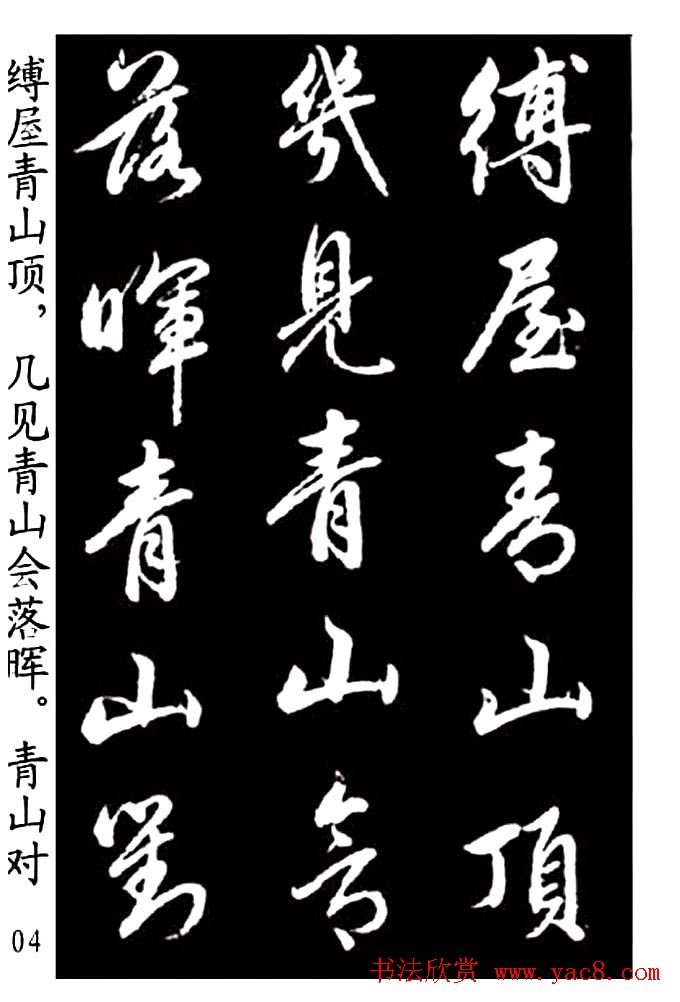 縛屋青山頂
幾見青山會
落暉青山對
缚屋青山顶，几见青山会落晖。青山对
04
书法欣赏 www.yac8.com